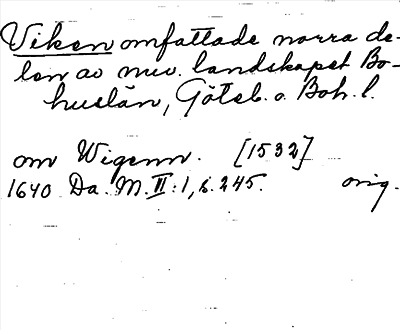 Viken omfattade norra de-
len av nuv. landskapet Bo-
huslän, Göteb. o. Boh. l.
om Wigenn. [1532]
1640 Da. M. II:1, s. 245. orig.